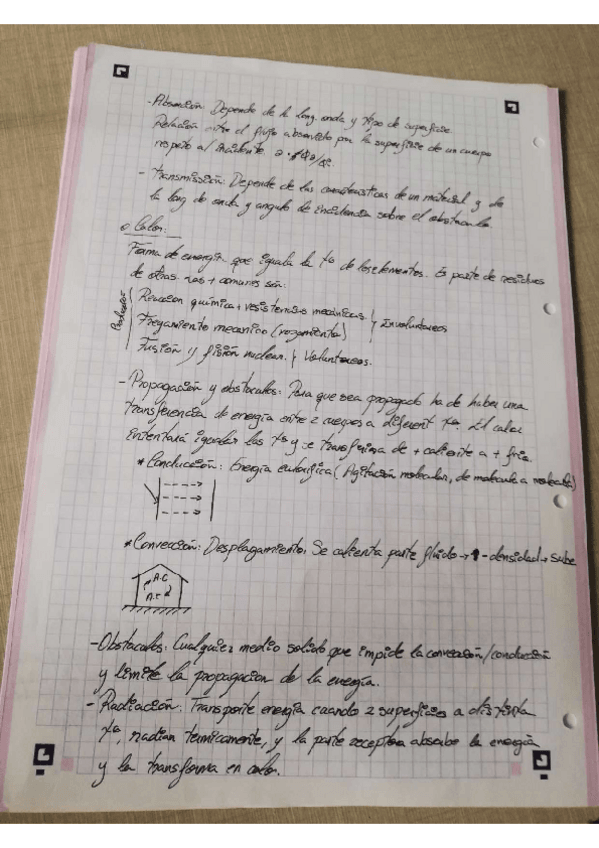 - Absorción: Depende de la long. onda y tipo de superficie
Relación entre el flujo absorvido por la superficie de un cuerpo
respeto al incidente
- Transmisión: Depende de las caracteristicas de un material y de
la long de onda y angulo de incidencia sobre el obstaculo.
o Calor:
Forma de energia que iguala la tª de los elementos. Es parte de residuos
de otras. Las + comunes son:
Reaccion química + resistencias mecánicas } Involuntareos
Fregamiento mecanico (rozamiento)
Fusión y fisión nuclear. } Voluntareos.
- Propagación y obstaculos: Para que sea propagado ha de haber una
transferencia de energia entre 2 cuerpos a diferent tª. El calor
intentará igualar las tª y se transfiere de + caliente a + frio.
* Conducción: Energia (Agitación molecular, de molecula a molecula)
* Convección: Desplazamiento. Se calienta parte fluido → - densidad → sube
A.C
A.F
- Obstaculos: Cualquier medio solido que impide la convección/conducción
y limite la propagacion de la energia.
- Radiación: Transporte energia cuando 2 superficies a distinta
tª, radian termicamente, y la parte receptora absorbe la energia
y la transforma en calor.